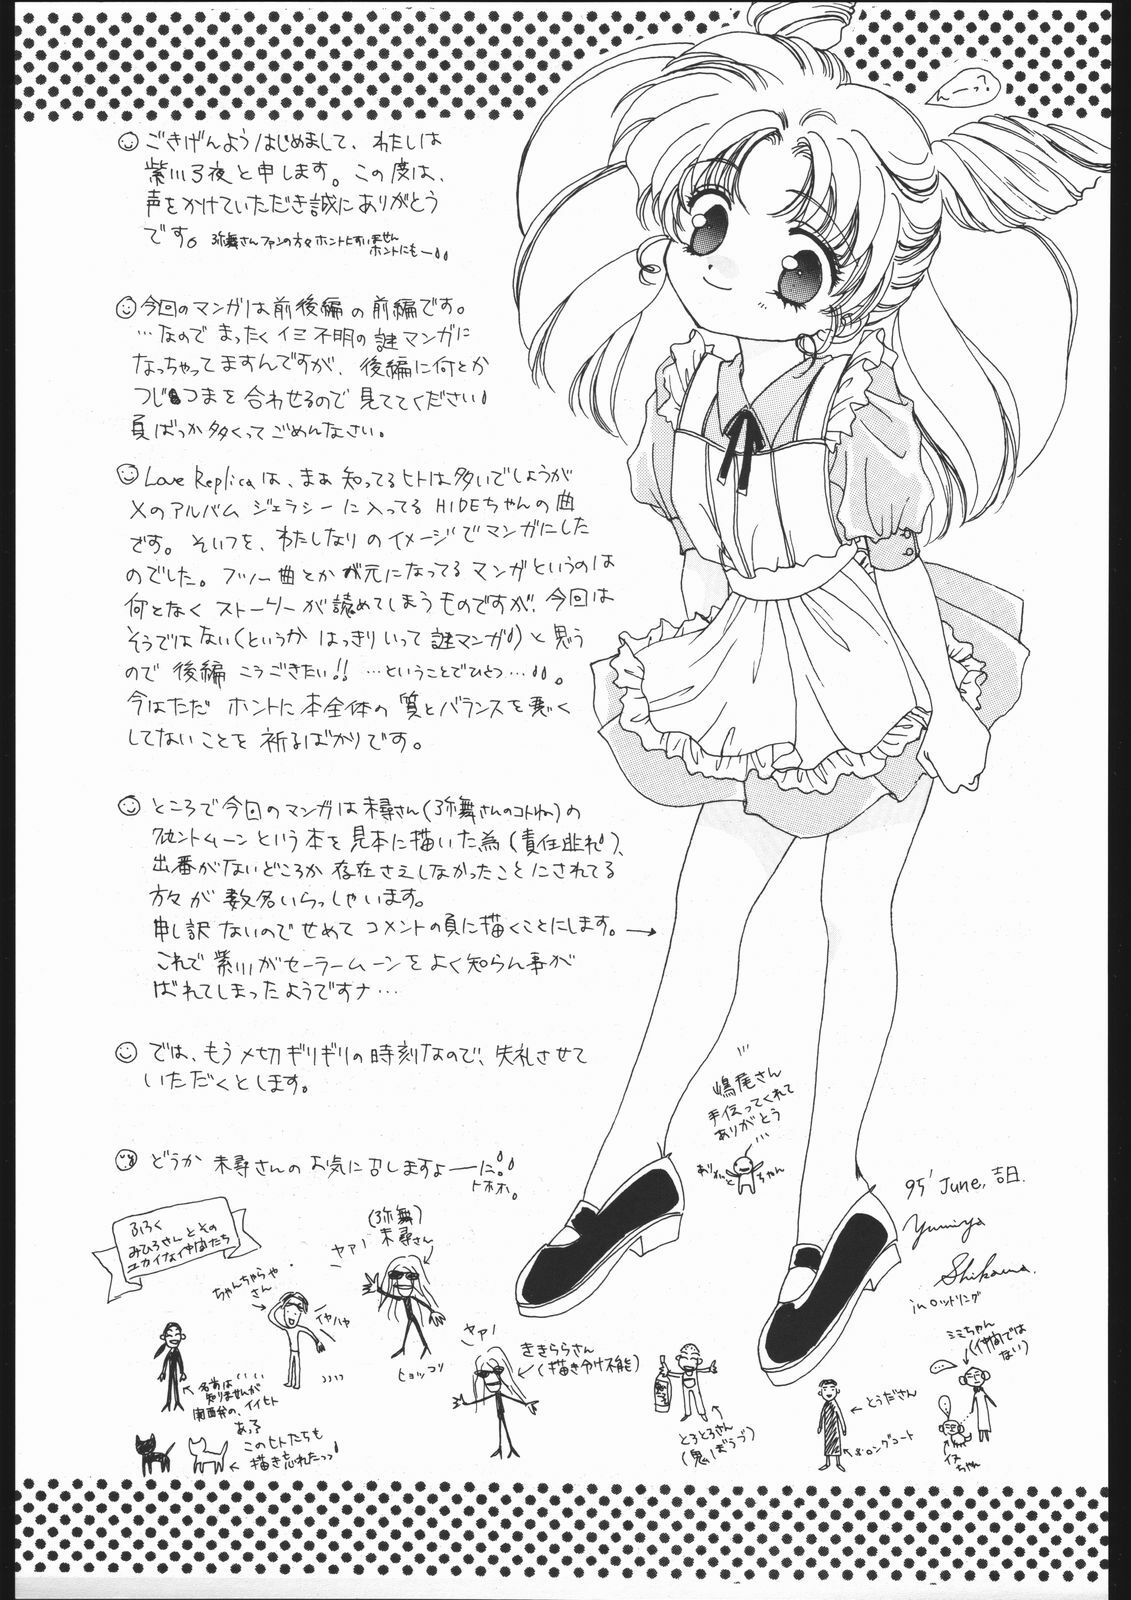 んーっ?
ごきげんようはじめまして、わたしは
紫川弓夜と申します。この度は、
声をかけていただき誠にありがとう
です。弥舞さんファンの方々ホントにすいません
ホントにもー
今回のマンガは前後編の前編です。
…なのでまったくイミ不明の謎マンガに
なっちゃってますんですが、後編に何とか
つじつまを合わせるので見ててください
負ばっか多くってごめんなさい。
Love Replicaは、まぁ知ってるヒトは多いでしょうが
Xのアルバムジェラシーに入ってるHIDEちゃんの曲
です。そいつを、わたしなりのイメージでマンガにした
のでした。フツー曲とかが元になってるマンガというのは
何となくストーリーが読めてしまうものですが、今回は
そうではない(というかはっきりいって謎マンガ)と思う
ので後編こうごきたい!!…ということでひとつ…。
今はただホントに本全体の質とバランスを悪く
してないことを祈るばかりです。
ところで今回のマンガは未尋さん(弥舞さんのコトね)の
クレセントムーンという本を見本に描いた為(責任逃れ)、
出番がないどころか存在さえしなかったことにされてる
方々が数名いらっしゃいます。
申し訳ないのでせめてコメントの頁に描くことにします。→
これで紫川がセーラームーンをよく知らん事が
ばれてしまったようですナ…
では、もう〆切ギリギリの時刻なので、失礼させて
いただくとします。
どうか未尋さんのお気に召しますよーに。
トホホ。
嶋尾さん
手伝ってくれて
ありがとう
ちゃん
95' June, 吉日.
Yumiya
Shikawa.
in ロットリング
ふろく
みひろさんとその
ユカイな仲間たち
ちゃんちゃらや
さん
イヤハヤ
(弥舞)
未尋さん
ヤァ!
ヒョッコリ
ヤァ!
ききららさん
(描き分け不能)
名前は
知りませんが
関西弁の、イイヒト
あっ
このヒトたちも
描き忘れたっっ
とろとろさん
(鬼ぼうづ)
とうださん
ロングコート
ミミちゃん
(仲間では
ない)
イヌ
ちゃん